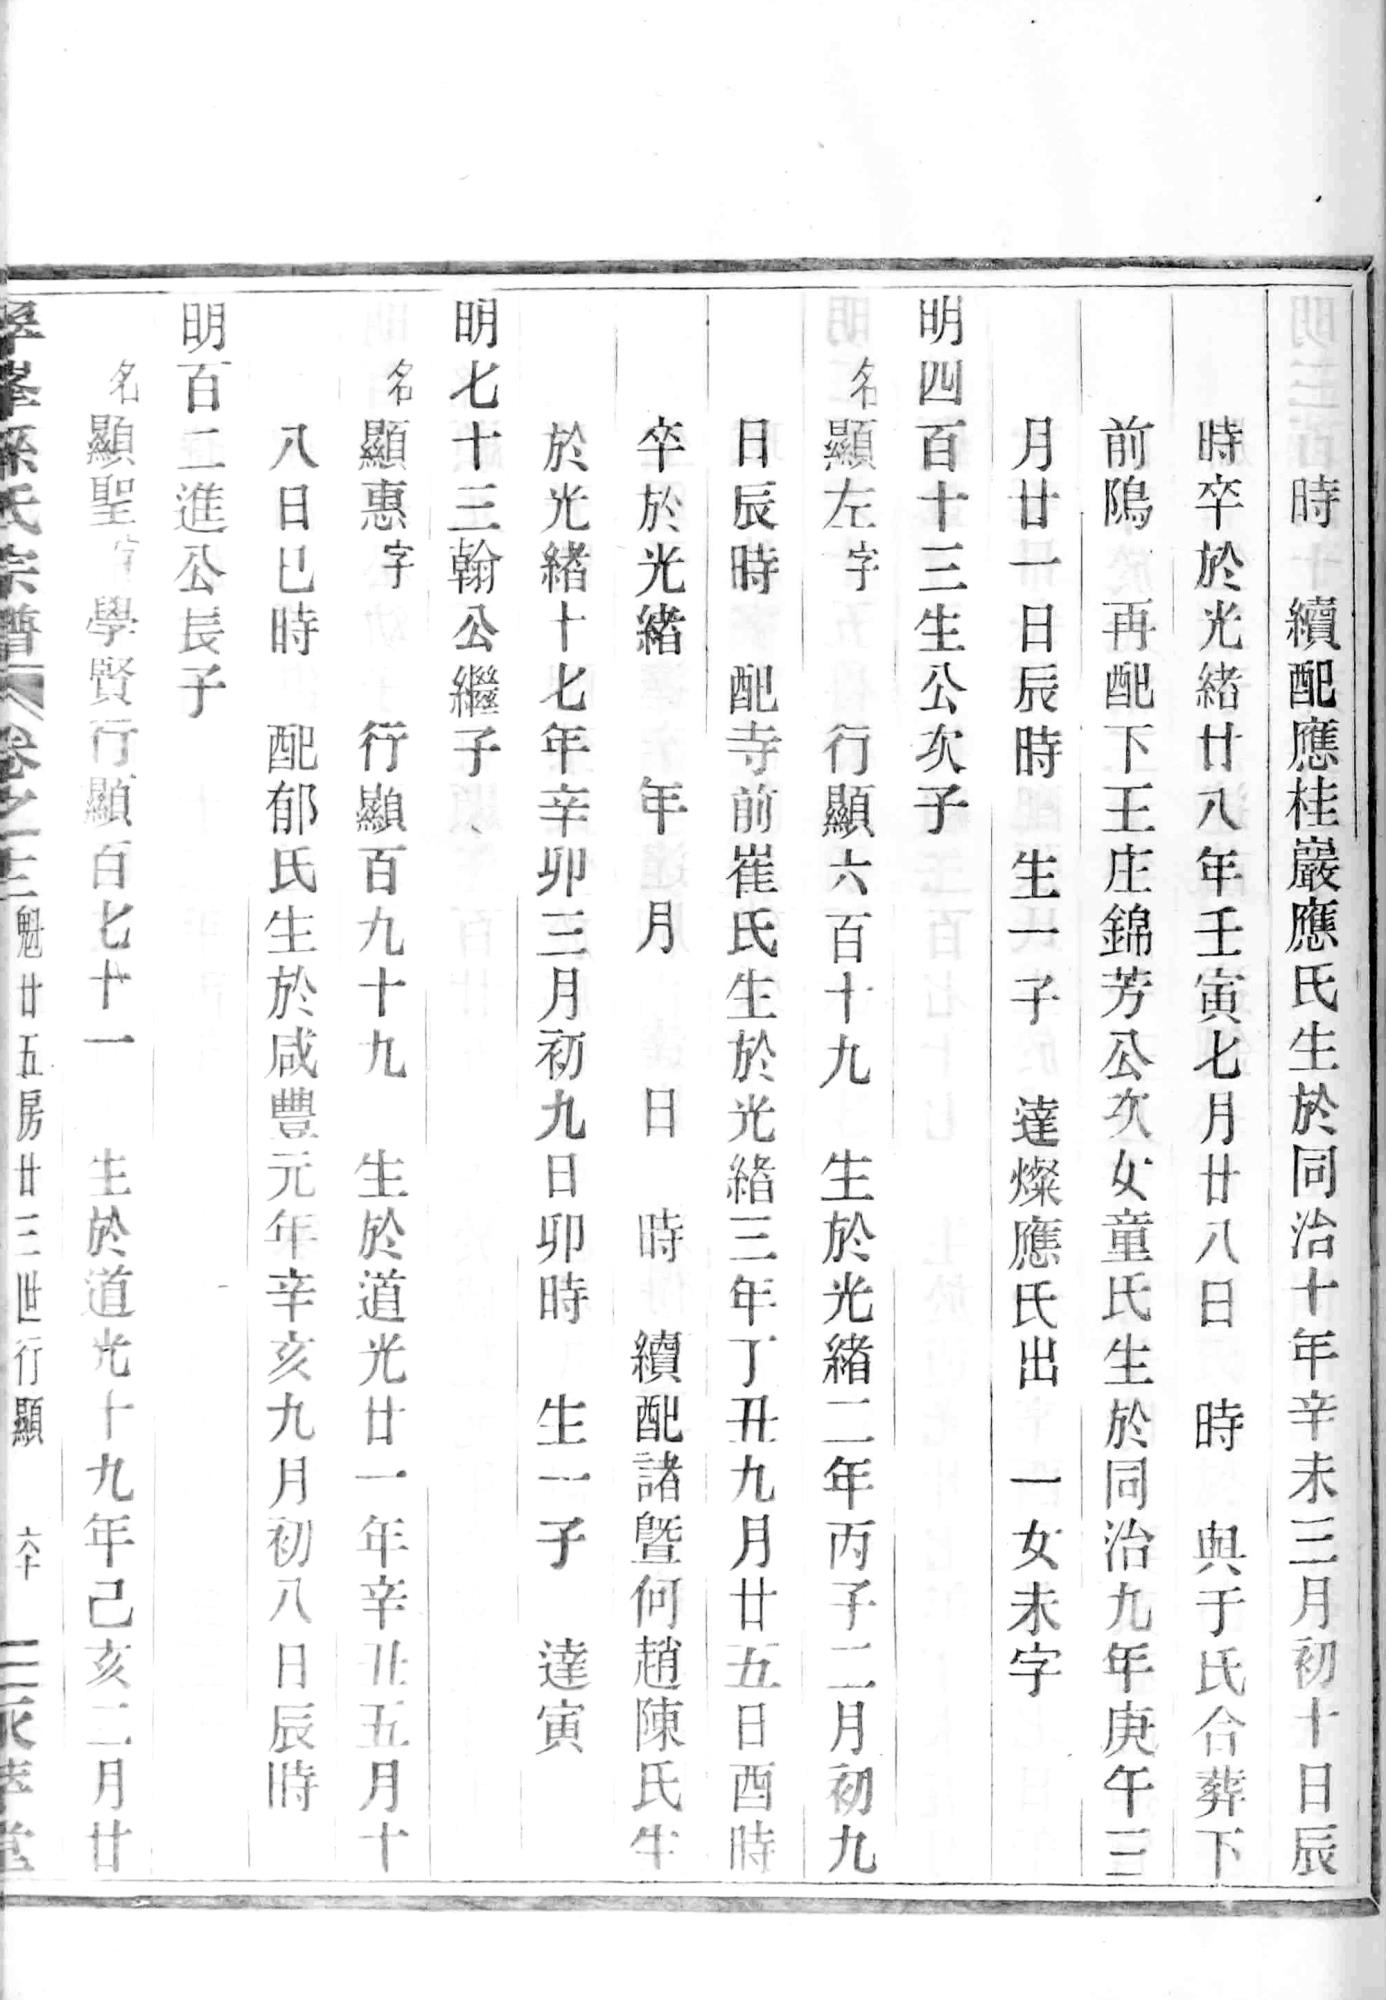 時　續配應桂巖應氏生於同治十年辛未三月初十日辰
時卒於光緒廿八年壬寅七月廿八日　時　與于氏合葬下
前隖　再配下王庄錦芳公次女童氏生於同治九年庚午三
月廿一日辰時　生一子　達燦應氏出　一女未字
明四百十三生公次子
名顯左字　　行顯六百十九　生於光緒二年丙子二月初九
日辰時　配寺前崔氏生於光緒三年丁丑九月廿五日酉時
卒於光緒　　年　月　　日　時　續配諸暨何趙陳氏生
於光緒十七年辛卯三月初九日卯時　生一子　達寅
明七十三翰公繼子
名顯惠字　　行顯百九十九　生於道光廿一年辛丑五月十
八日巳時　配郁氏生於咸豐元年辛亥九月初八日辰時
明百二進公長子
名顯聖字學賢行顯百七十一　生於道光十九年己亥二月廿
孫氏宗譜　卷之十三　魁廿五房廿三世行顯　六十